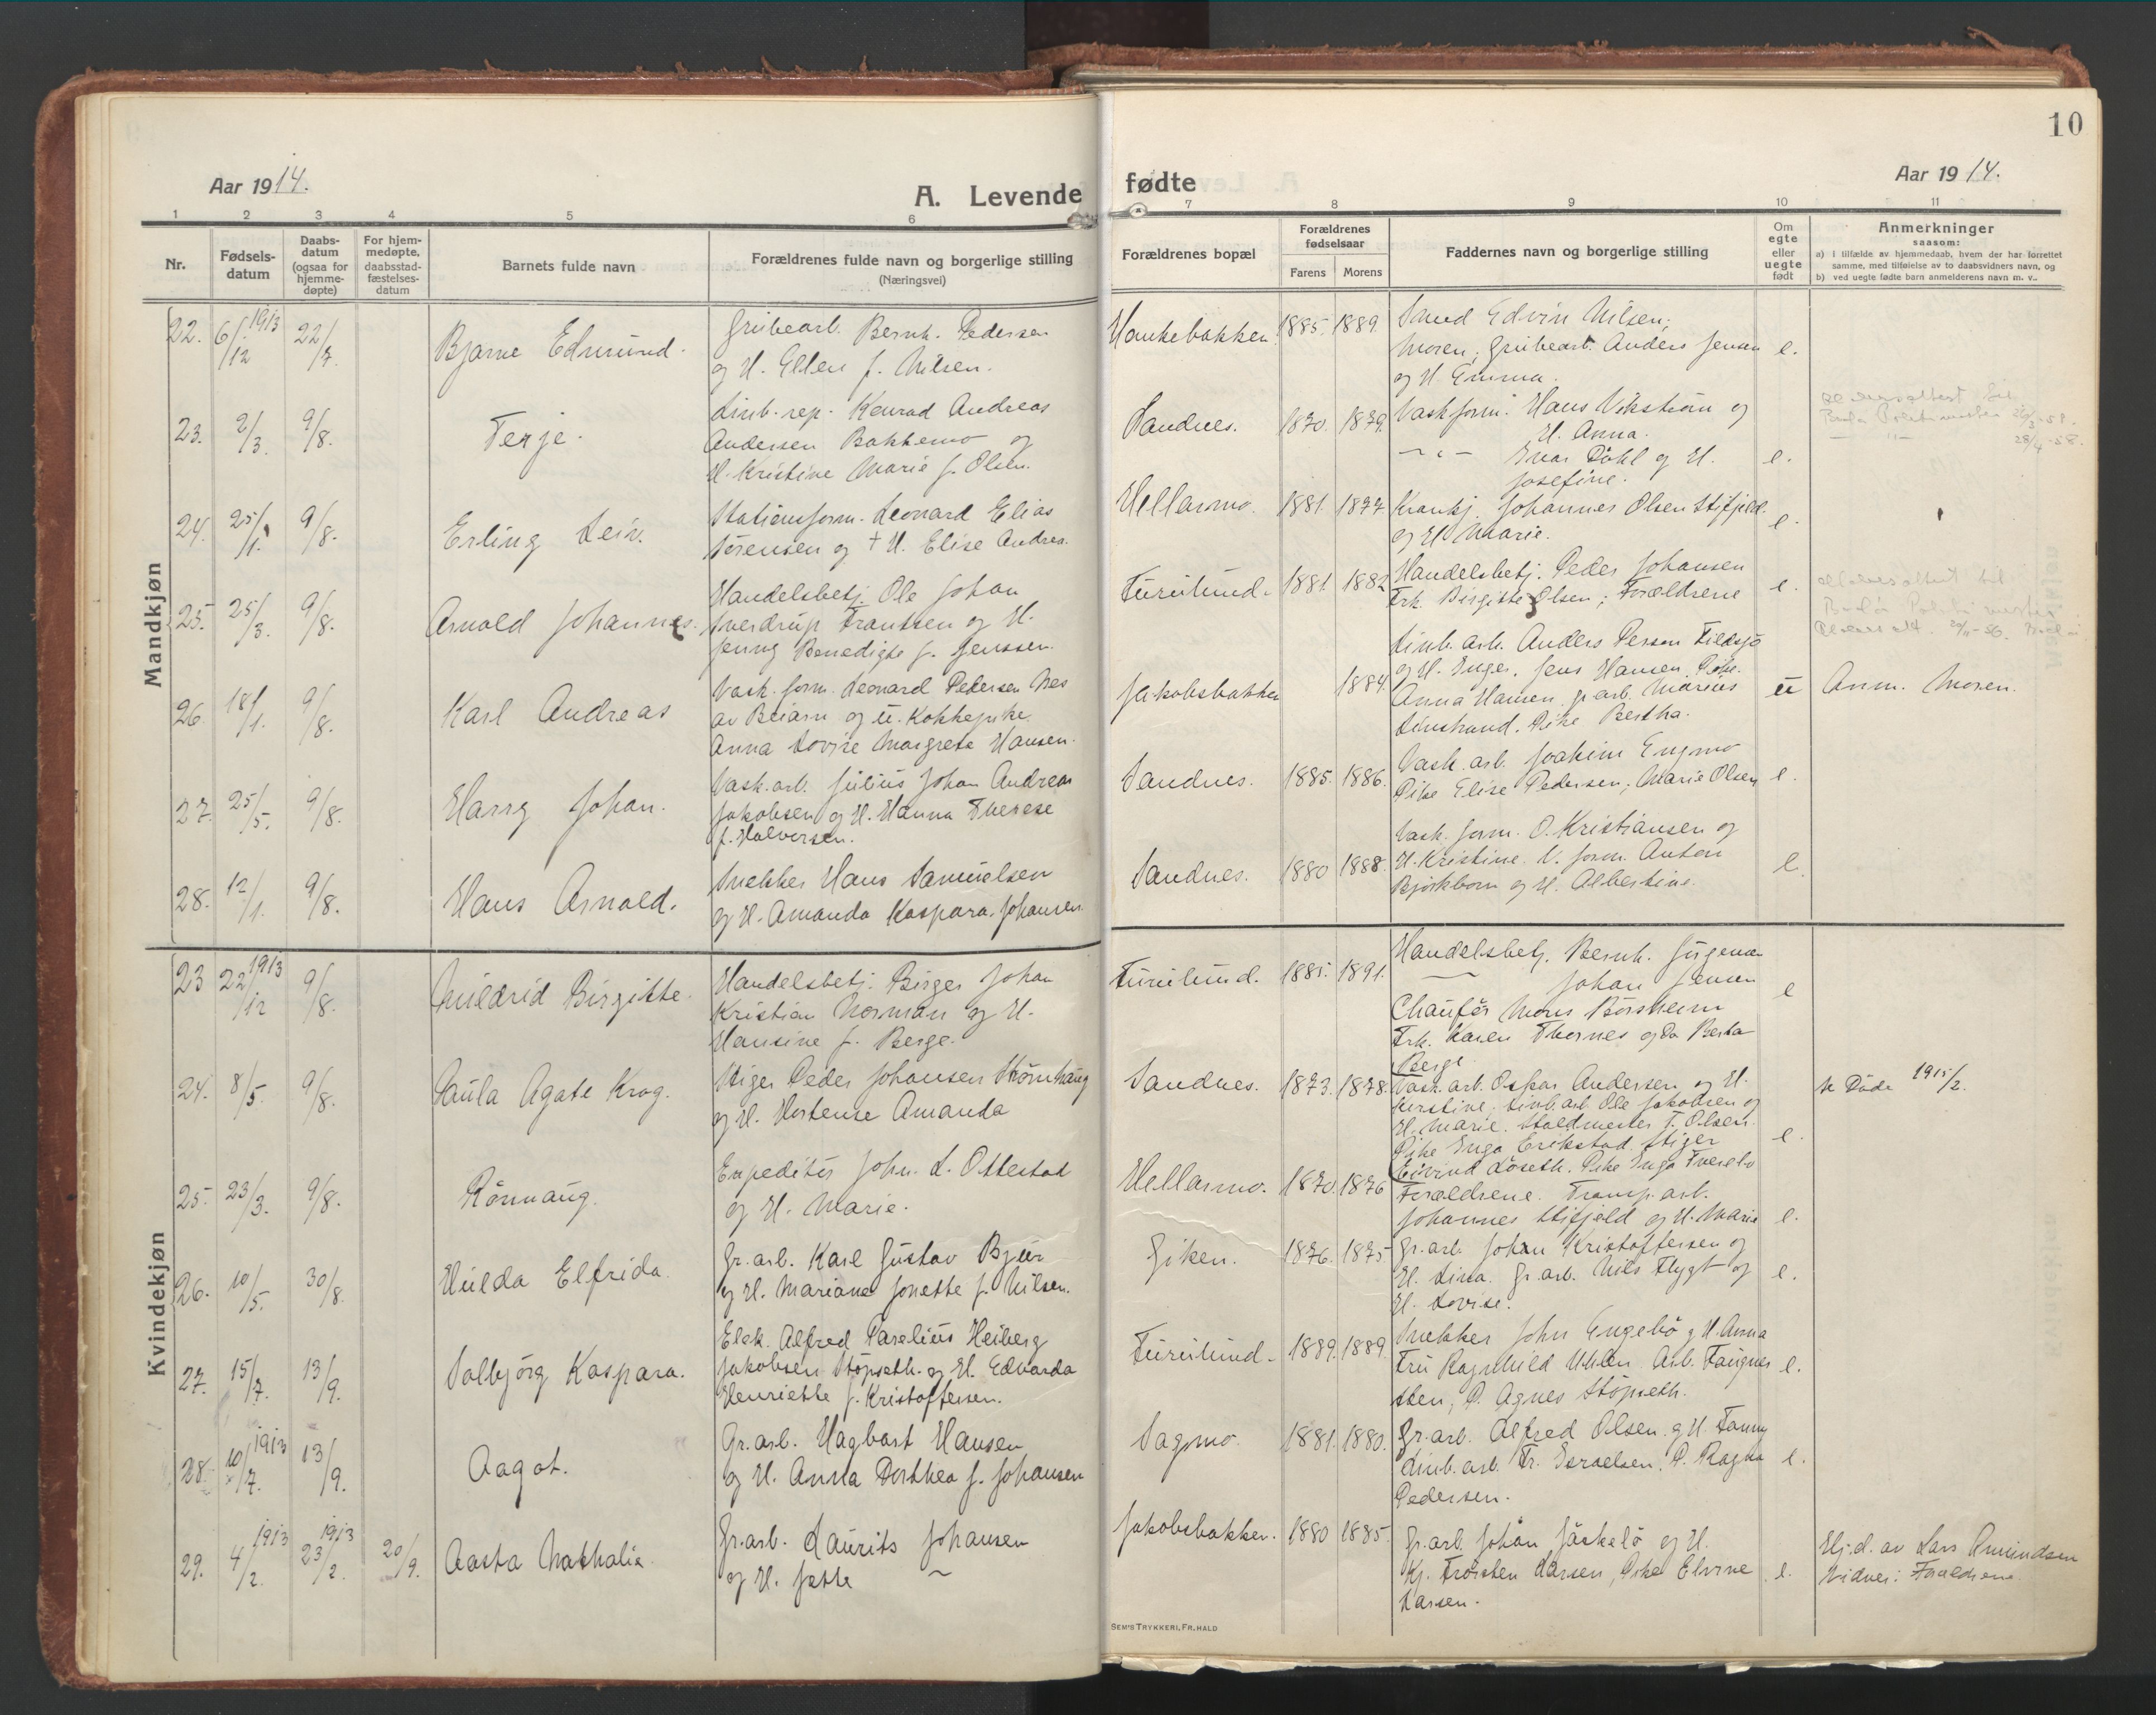 10
Aar 1914.
A. Levende fødte
Aar 1914.
1 2 3 4 5 6 7 8 9 10 11
Nr.
Fødsels-
datum
Daabs-
datum
(ogsaa for
hjemme-
døpte)
For hjem-
medøpte,
daabsstad-
fæstelses-
datum
Barnets fulde navn
Forældrenes fulde navn og borgerlige stilling
(Næringsvei)
Forældrenes bopæl
Forældrenes
fødselsaar
Farens Morens
Faddernes navn og borgerlige stilling
Om
egte
eller
uegte
født
Anmerkninger
saasom:
a) i tilfælde av hjemmedaab, hvem der har forrettet
samme, med tilføielse av to daabsvidners navn, og
b) ved uegte fødte barn anmelderens navn m. v..
Mandkjøn
22. 6/12 1913 22/7 Bjarne Edmund.
Grubearb. Bernh. Pedersen
og H. Ellen f. Nilsen.
Hankebakken. 1885. 1889.
Saud Edvin Nilsen;
Moren; Grubearb. Anders Jensen
og H. Emma.
e.
23. 2/3. 9/8. Terje.
Linb. rep. Konrad Andreas
Andersen Bakkemo og
H. Kristine Marie f. Olsen.
Sandnes. 1870. 1879.
Vaskform. Hans Vikström og
H. Anna.
— " — Ivar Dahl og H.
Josefine.
e.
24. 25/1. 9/8. Erling Leiv.
Stationsform. Leonard Elias
Sørensen og † H. Elise Andrea.
Hellarmo. 1881. 1877.
Krankj. Johannes Olsen Stifjeld
og H. Marie.
e.
25. 25/3. 9/8. Arnold Johannes.
Handelsbetj. Ole Johan
Sverdrup Frantsen og H.
Jenny Benedigte f. Jenssen.
Furulund. 1881. 1882
Handelsbetj. Peder Johansen
Frk. Birgitte Olsen; Forældrene
e.
26. 18/1. 9/8. Karl Andreas
Vask. form. Leonard Pedersen Nes
av Beiarn og u. Kokkepike
Anna Lovise Margrete Hansen.
Jakobsbakken 1884.
Linb. arb. Anders Person Fildsjø
og H. Inger. Jens Hansen, Pike.
Anna Hansen, gr.arb. Marius
Linstrand. Pike Bertha.
u Anm. Moren.
27. 25/5. 9/8. Harry Johan.
Vask. arb. Julius Johan Andreas
Jakobsen og H. Hanna Therese
f. Halvorsen.
Sandnes. 1885. 1886.
Vask. arb. Joakim Engmo
Pike Elise Pedersen; Marie Olsen
e.
28. 12/1. 9/8. Hans Arnold.
Snekker Hans Samuelsen
og H. Amanda Kaspara Johansen.
Sandnes. 1880 1888.
Vask. form. O. Kristiansen og
H. Kristine. V. form. Anton
Bjørkbom og H. Albertine.
e.
Kvindekjøn
23 22/12 1913 9/8. Mildrid Birgitte.
Handelsbetj. Birger Johan
Kristian Norman og H.
Hansine f. Berge.
Furulund. 1885. 1891.
Handelsbetj. Bernh. Jürgensen
— Johan Jensen
Chaufør Mons Børsheim
Frk. Karen Thornes og Do Berta
Berge
e
24. 8/5. 9/8. Paula Agate Krog.
Stiger Peder Johansen Strømhaug
og H. Hortense Amanda
Sandnes. 1873. 1878.
Vask. arb. Oskar Andersen og H.
Kerstine; Linb. arb. Ole Jakobsen og
H. Marie. Staldmester T. Olsen.
Pike Inga Erikstad. Stiger
Eivind Løseth. Pike Inga Tverelv
e.
se Døde 1915/2.
25. 23/3. 9/8. Rönnaug.
Expeditør Johr. L. Ottestad
og H. Marie.
Hellarmo. 1870. 1876
Forældrene. Transp. arb.
Johannes Stifjeld og H. Marie
e.
26. 10/5. 30/8 Hulda Elfrida.
Gr. arb. Karl Gustav Bjur
og H. Mariane Jonette f. Nilsen.
Giken. 1876. 1875
Gr. arb. Johan Kristoffersen og
H. Lina. Gr. arb. Nils Flygt og
H. Lovise.
e.
27. 15/7. 13/9. Solbjørg Kaspara.
Elek. Alfred Parelius Heiberg
Jakobsen Støpseth. og H. Edvarda
Henriette f. Kristoffersen.
Furulund. 1889. 1889.
Snekker John Engebø og H. Anna
Fru Ragnhild Uhlen. Arb. Faugner
sten, P. Agnes Støpseth.
e.
28. 10/7. 1913 13/9. Aagot.
Gr. arb. Hagbart Hansen
og H. Anna Dorthea f. Johansen
Sagmo. 1881. 1880.
Gr. arb. Alfred Olsen og H. Fanny
Linb. arb. Fr. Israelsen. P. Ragna
Pedersen.
e.
29. 4/2. 1913 23/2. 1913 20/9. Aasta Nathalia.
Gr. arb. Laurits Johansen
og H. Jette —
Jakobsbakken. 1880 1885.
Gr. arb. Johan Jäskelö og H.
Kj. Trorsten Larsen, Pike Elvine
Larsen.
e.
Hj.d. av Lars Amundsen
Vidner: Forældrene.
SEM'S TRYKKERI, FR. HALD